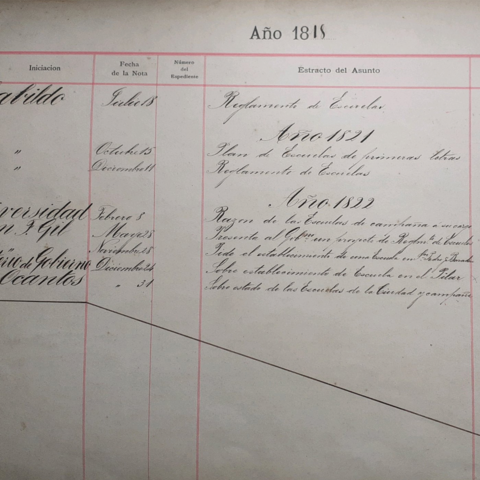 Año 1818
Iniciacion Fecha de la Nota Número del Expediente Extracto del Asunto
abildo Julio 18 Reglamento de Escuelas
Año 1821
" Octubre 15 Plan de Escuelas de primeras letras
" Diciembre 11 Reglamento de Escuelas
Año 1822
versidad Febrero 8 Razon de las Escuelas de campaña a su cargo
n P. Gil Marzo 28 Presenta al Gbno un proyecto de Reglmto de Escuelas
Noviembre 28 Pide el establecimiento de una Escuela en
rio de Gobierno Diciembre 24 Sobre establecimiento de Escuela en el Pilar
Ocantos " 31 Sobre estado de las Escuelas de la Ciudad y campaña